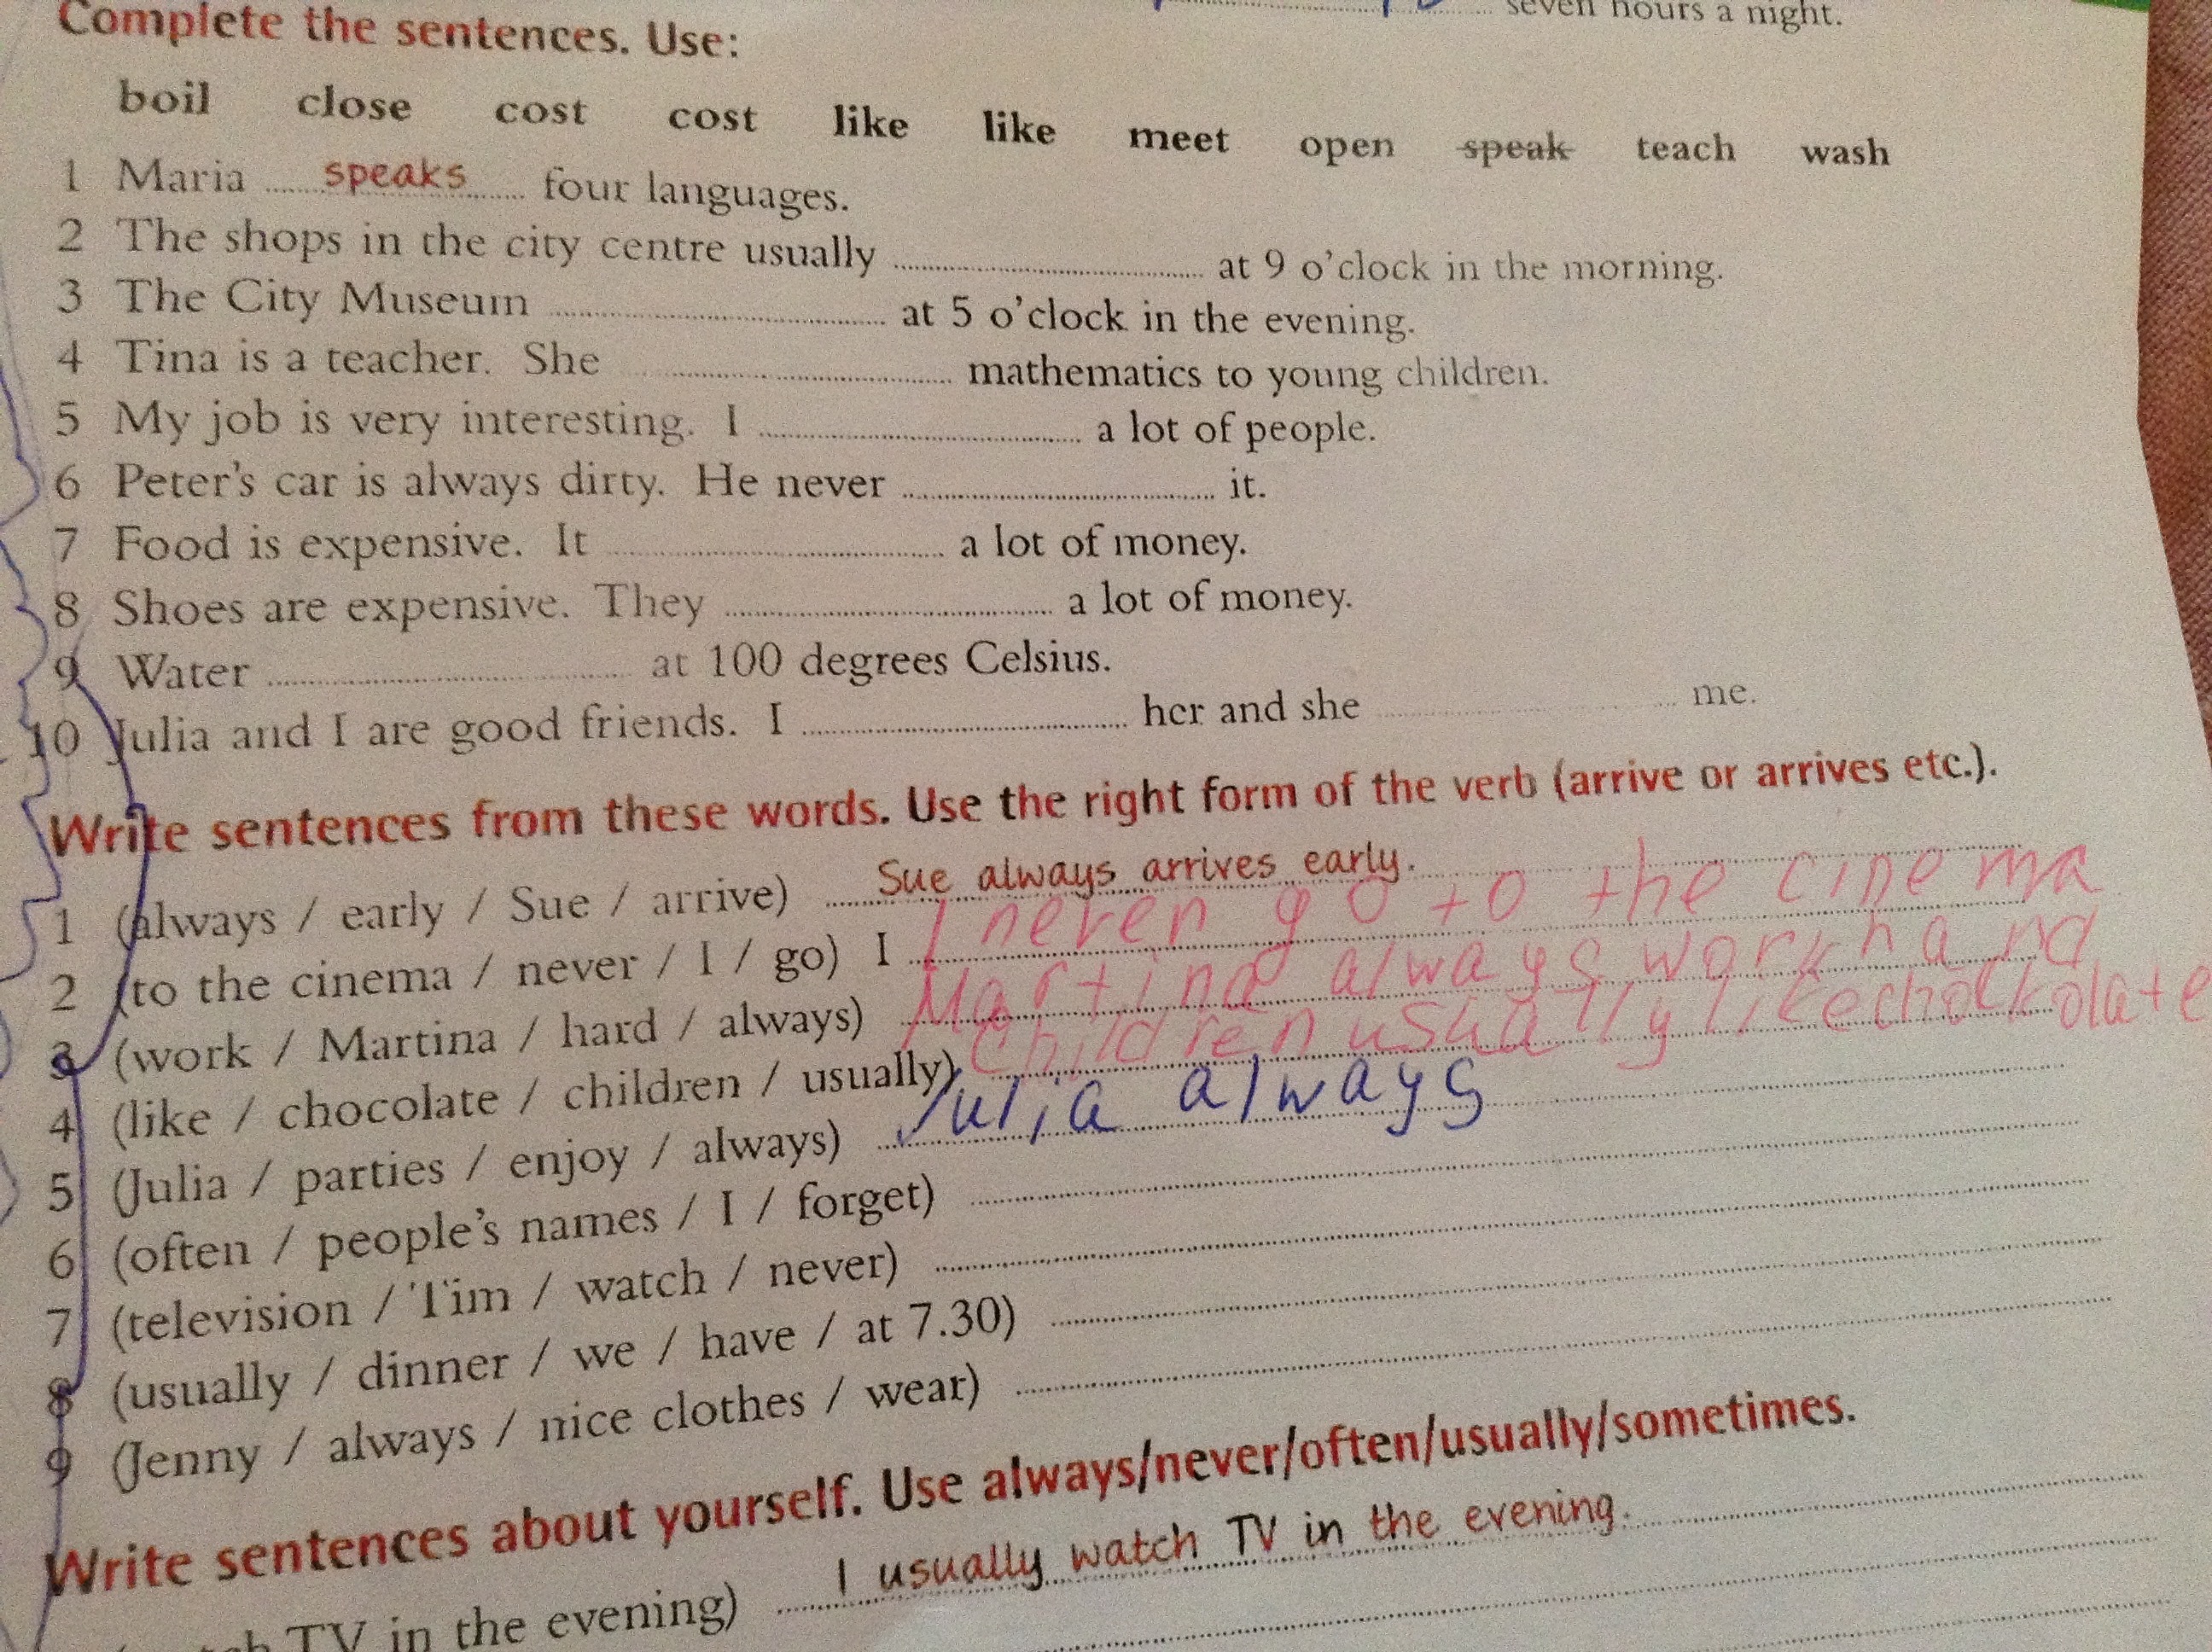 seven hours a night.
Complete the sentences. Use:
boil close cost cost like like meet open speak teach wash
1 Maria speaks four languages.
2 The shops in the city centre usually at 9 o'clock in the morning.
3 The City Museum at 5 o'clock in the evening.
4 Tina is a teacher. She mathematics to young children.
5 My job is very interesting. I a lot of people.
6 Peter's car is always dirty. He never it.
7 Food is expensive. It a lot of money.
8 Shoes are expensive. They a lot of money.
9 Water at 100 degrees Celsius.
10 Julia and I are good friends. I her and she me.
Write sentences from these words. Use the right form of the verb (arrive or arrives etc.).
1 (always / early / Sue / arrive) Sue always arrives early.
2 (to the cinema / never / I / go) I I never go to the cinema
3 (work / Martina / hard / always) Martina always work hard
4 (like / chocolate / children / usually) children usually like chockolate
5 (Julia / parties / enjoy / always) Julia always
6 (often / people's names / I / forget)
7 (television / Tim / watch / never)
8 (usually / dinner / we / have / at 7.30)
9 (Jenny / always / nice clothes / wear)
Write sentences about yourself. Use always/never/often/usually/sometimes.
TV in the evening) I usually watch TV in the evening.